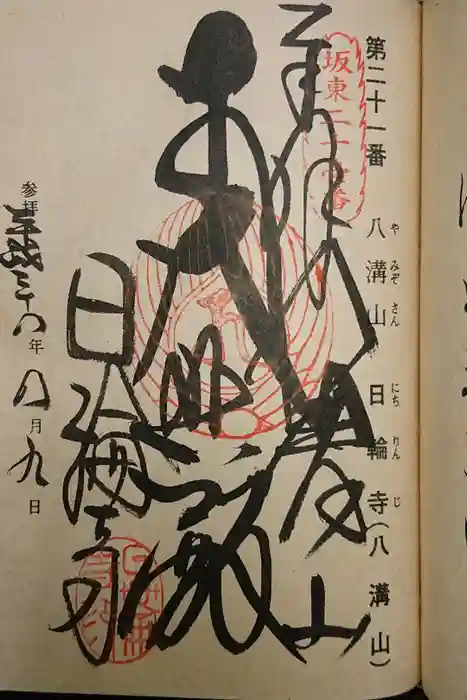 第二十一番 八溝山 日輪寺(八溝山)
や みぞ さん にち りん じ
坂東二十一番
奉拝
八溝山
大悲殿
日輪寺
参拝 平成三十年 八月九日